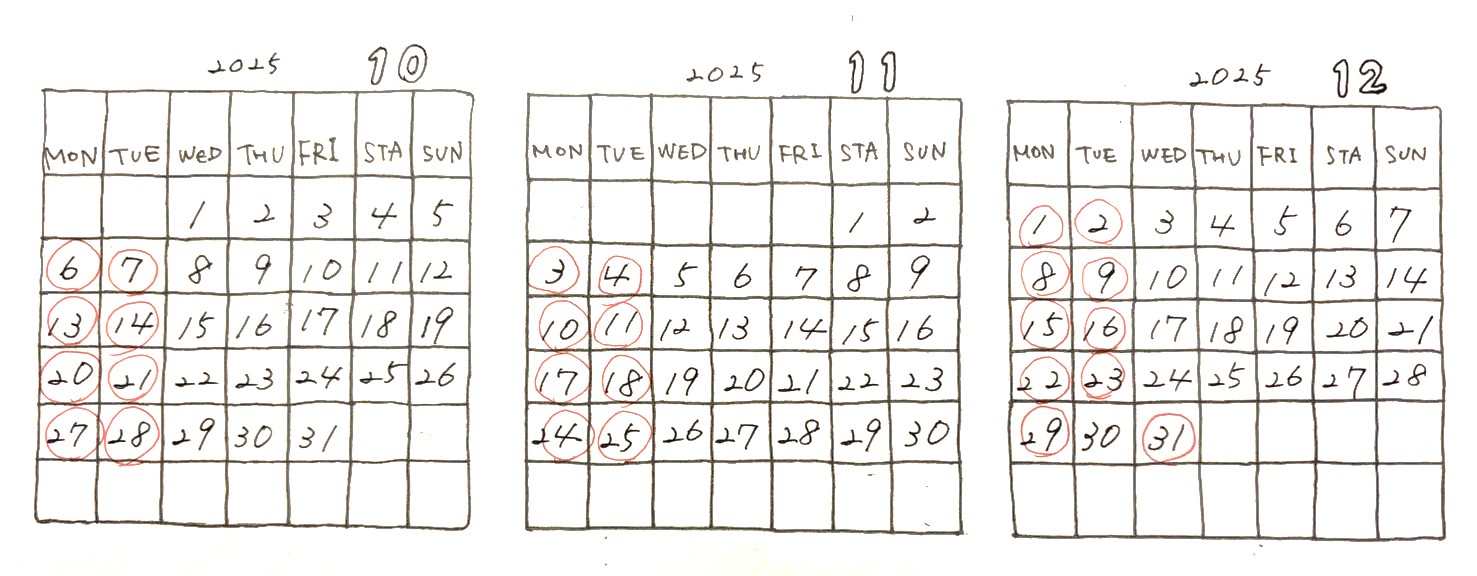 2025 10
MON TUE WED THU FRI STA SUN
1 2 3 4 5
6 7 8 9 10 11 12
13 14 15 16 17 18 19
20 21 22 23 24 25 26
27 28 29 30 31
2025 11
MON TUE WED THU FRI STA SUN
1 2
3 4 5 6 7 8 9
10 11 12 13 14 15 16
17 18 19 20 21 22 23
24 25 26 27 28 29 30
2025 12
MON TUE WED THU FRI STA SUN
1 2 3 4 5 6 7
8 9 10 11 12 13 14
15 16 17 18 19 20 21
22 23 24 25 26 27 28
29 30 31